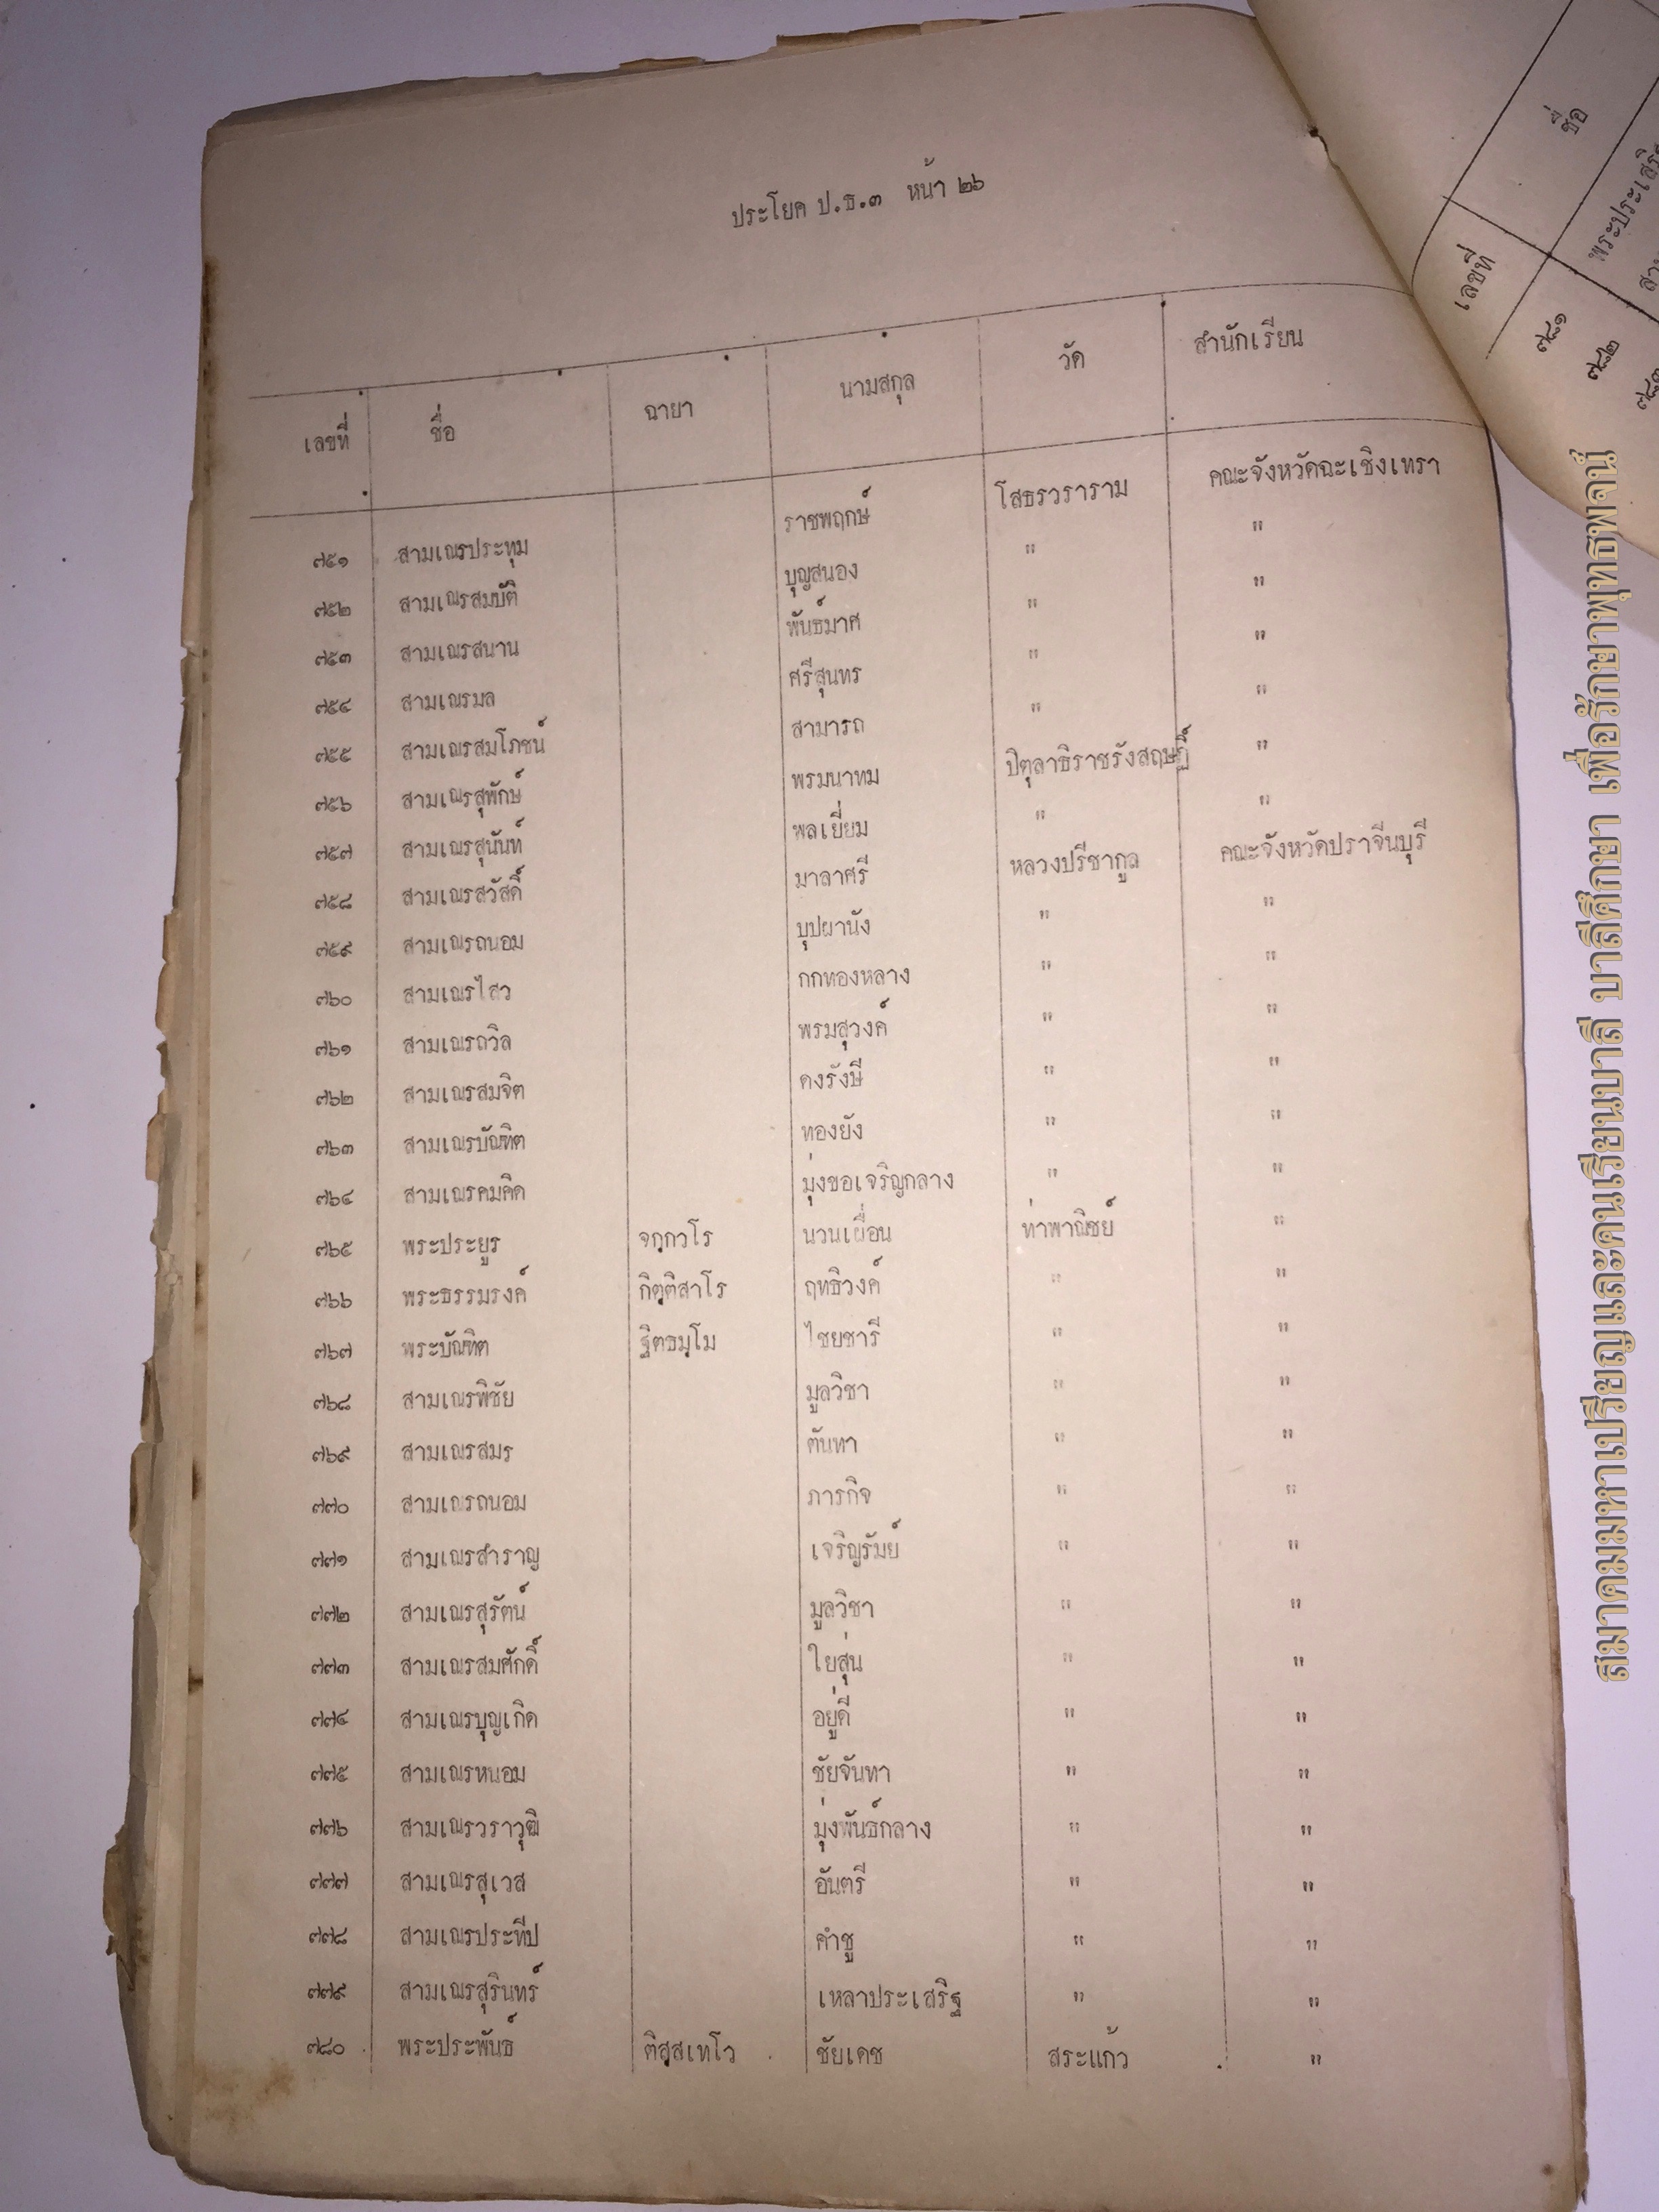 ประโยค ป.ธ.๓ หน้า ๒๖
เลขที่ ชื่อ ฉายา นามสกุล วัด สำนักเรียน
๗๕๑ สามเณรประทุม ราชพฤกษ์ โสธรวราราม คณะจังหวัดฉะเชิงเทรา
๗๕๒ สามเณรสมบัติ บุญสนอง " "
๗๕๓ สามเณรสนาน พันธ์มาศ " "
๗๕๔ สามเณรมล ศรีสุนทร " "
๗๕๕ สามเณรสมโภชน์ สามารถ " "
๗๕๖ สามเณรสุพักษ์ พรมนาทม ปิตุลาธิราชรังสฤษฎิ์ "
๗๕๗ สามเณรสุนันท์ พลเยี่ยม " "
๗๕๘ สามเณรสวัสดิ์ มาลาศรี หลวงปรีชากูล คณะจังหวัดปราจีนบุรี
๗๕๙ สามเณรถนอม บุปผานัง " "
๗๖๐ สามเณรไสว กกทองหลาง " "
๗๖๑ สามเณรถวิล พรมสุวงค์ " "
๗๖๒ สามเณรสมจิต คงรังษี " "
๗๖๓ สามเณรบัณฑิต ทองยัง " "
๗๖๔ สามเณรคมคิด มุ่งขอเจริญกลาง " "
๗๖๕ พระประยูร จกฺกวโร นวนเผื่อน ท่าพาณิชย์ "
๗๖๖ พระธรรมรงค์ กิตฺติสาโร ฤทธิวงค์ " "
๗๖๗ พระบัณฑิต ฐิตธมฺโม ไชยชารี " "
๗๖๘ สามเณรพิชัย มูลวิชา " "
๗๖๙ สามเณรสมร ตันทา " "
๗๗๐ สามเณรถนอม ภารกิจ " "
๗๗๑ สามเณรสำราญ เจริญรัมย์ " "
๗๗๒ สามเณรสุรัตน์ มูลวิชา " "
๗๗๓ สามเณรสมศักดิ์ ใยสุ่น " "
๗๗๔ สามเณรบุญเกิด อยู่ดี " "
๗๗๕ สามเณรหนอม ชัยจันทา " "
๗๗๖ สามเณรวราวุฒิ มุ่งพันธ์กลาง " "
๗๗๗ สามเณรสุเวส อันตรี " "
๗๗๘ สามเณรประทีป คำชู " "
๗๗๙ สามเณรสุรินทร์ เหลาประเสริฐ " "
๗๘๐ พระประพันธ์ ติสฺสเทโว ชัยเดช สระแก้ว "
เลขที่ ชื่อ
๗๘๑
๗๘๒
สมาคมมหาเปรียญและคนเรียนบาลี บาลีศึกษา เพื่อรักษาพุทธพจน์